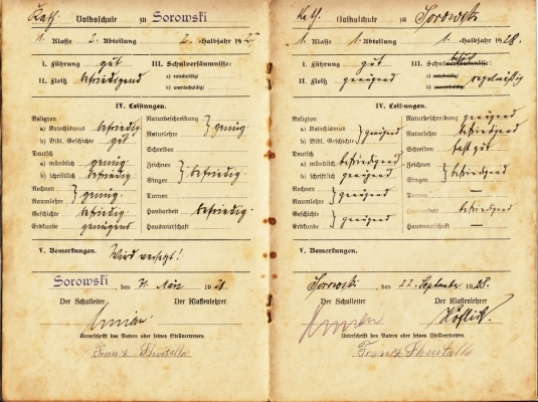 Kath. Volksschule zu Sorowski
1. Klasse 2. Abteilung 2. Halbjahr 192
I. Führung gut
II. Fleiß befriedigend
III. Schulversäumnisse:
a) entschuldigt
b) unentschuldigt
IV. Leistungen.
Religion
a) Katechismus befriedig.
b) Bibl. Geschichte gut
Deutsch
a) mündlich genüg.
b) schriftlich befriedig.
Rechnen
Raumlehre } genüg.
Geschichte befriedig.
Erdkunde genügend
Naturbeschreibung
Naturlehre } genüg.
Schreiben
Zeichnen
Singen } befriedig.
Turnen
Handarbeit befriedig.
Hauswirtschaft
V. Bemerkungen. Wird versetzt!
Sorowski, den 31. März 1928
Der Schulleiter Der Klassenlehrer
Unterschrift des Vaters oder seines Stellvertreters.
Kath. Volksschule zu Sorowski
1. Klasse 1. Abteilung 1. Halbjahr 1928.
I. Führung gut
II. Fleiß genügend
III. Schulversäumnisse:
regelmäßig
IV. Leistungen.
Religion
a) Katechismus
b) Bibl. Geschichte } genügend
Deutsch
a) mündlich befriedigend
b) schriftlich genügend
Rechnen
Raumlehre } genügend
Geschichte
Erdkunde } genügend
Naturbeschreibung genügend
Naturlehre befriedigend
Schreiben fast gut
Zeichnen
Singen } befriedigend
Turnen —
Handarbeit befriedigend
Hauswirtschaft —
V. Bemerkungen.
Sorowski, den 22. September 1928.
Der Schulleiter Der Klassenlehrer
Unterschrift des Vaters oder seines Stellvertreters.